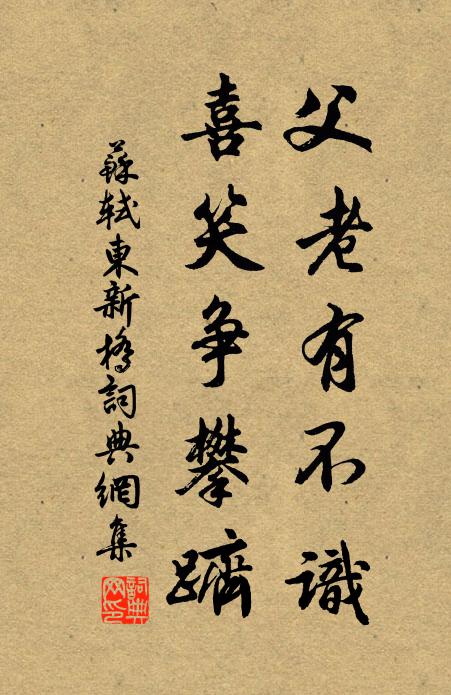 父老有不識
喜笑争攀躋
蘇軾東新橋詞典網集
詞典网印